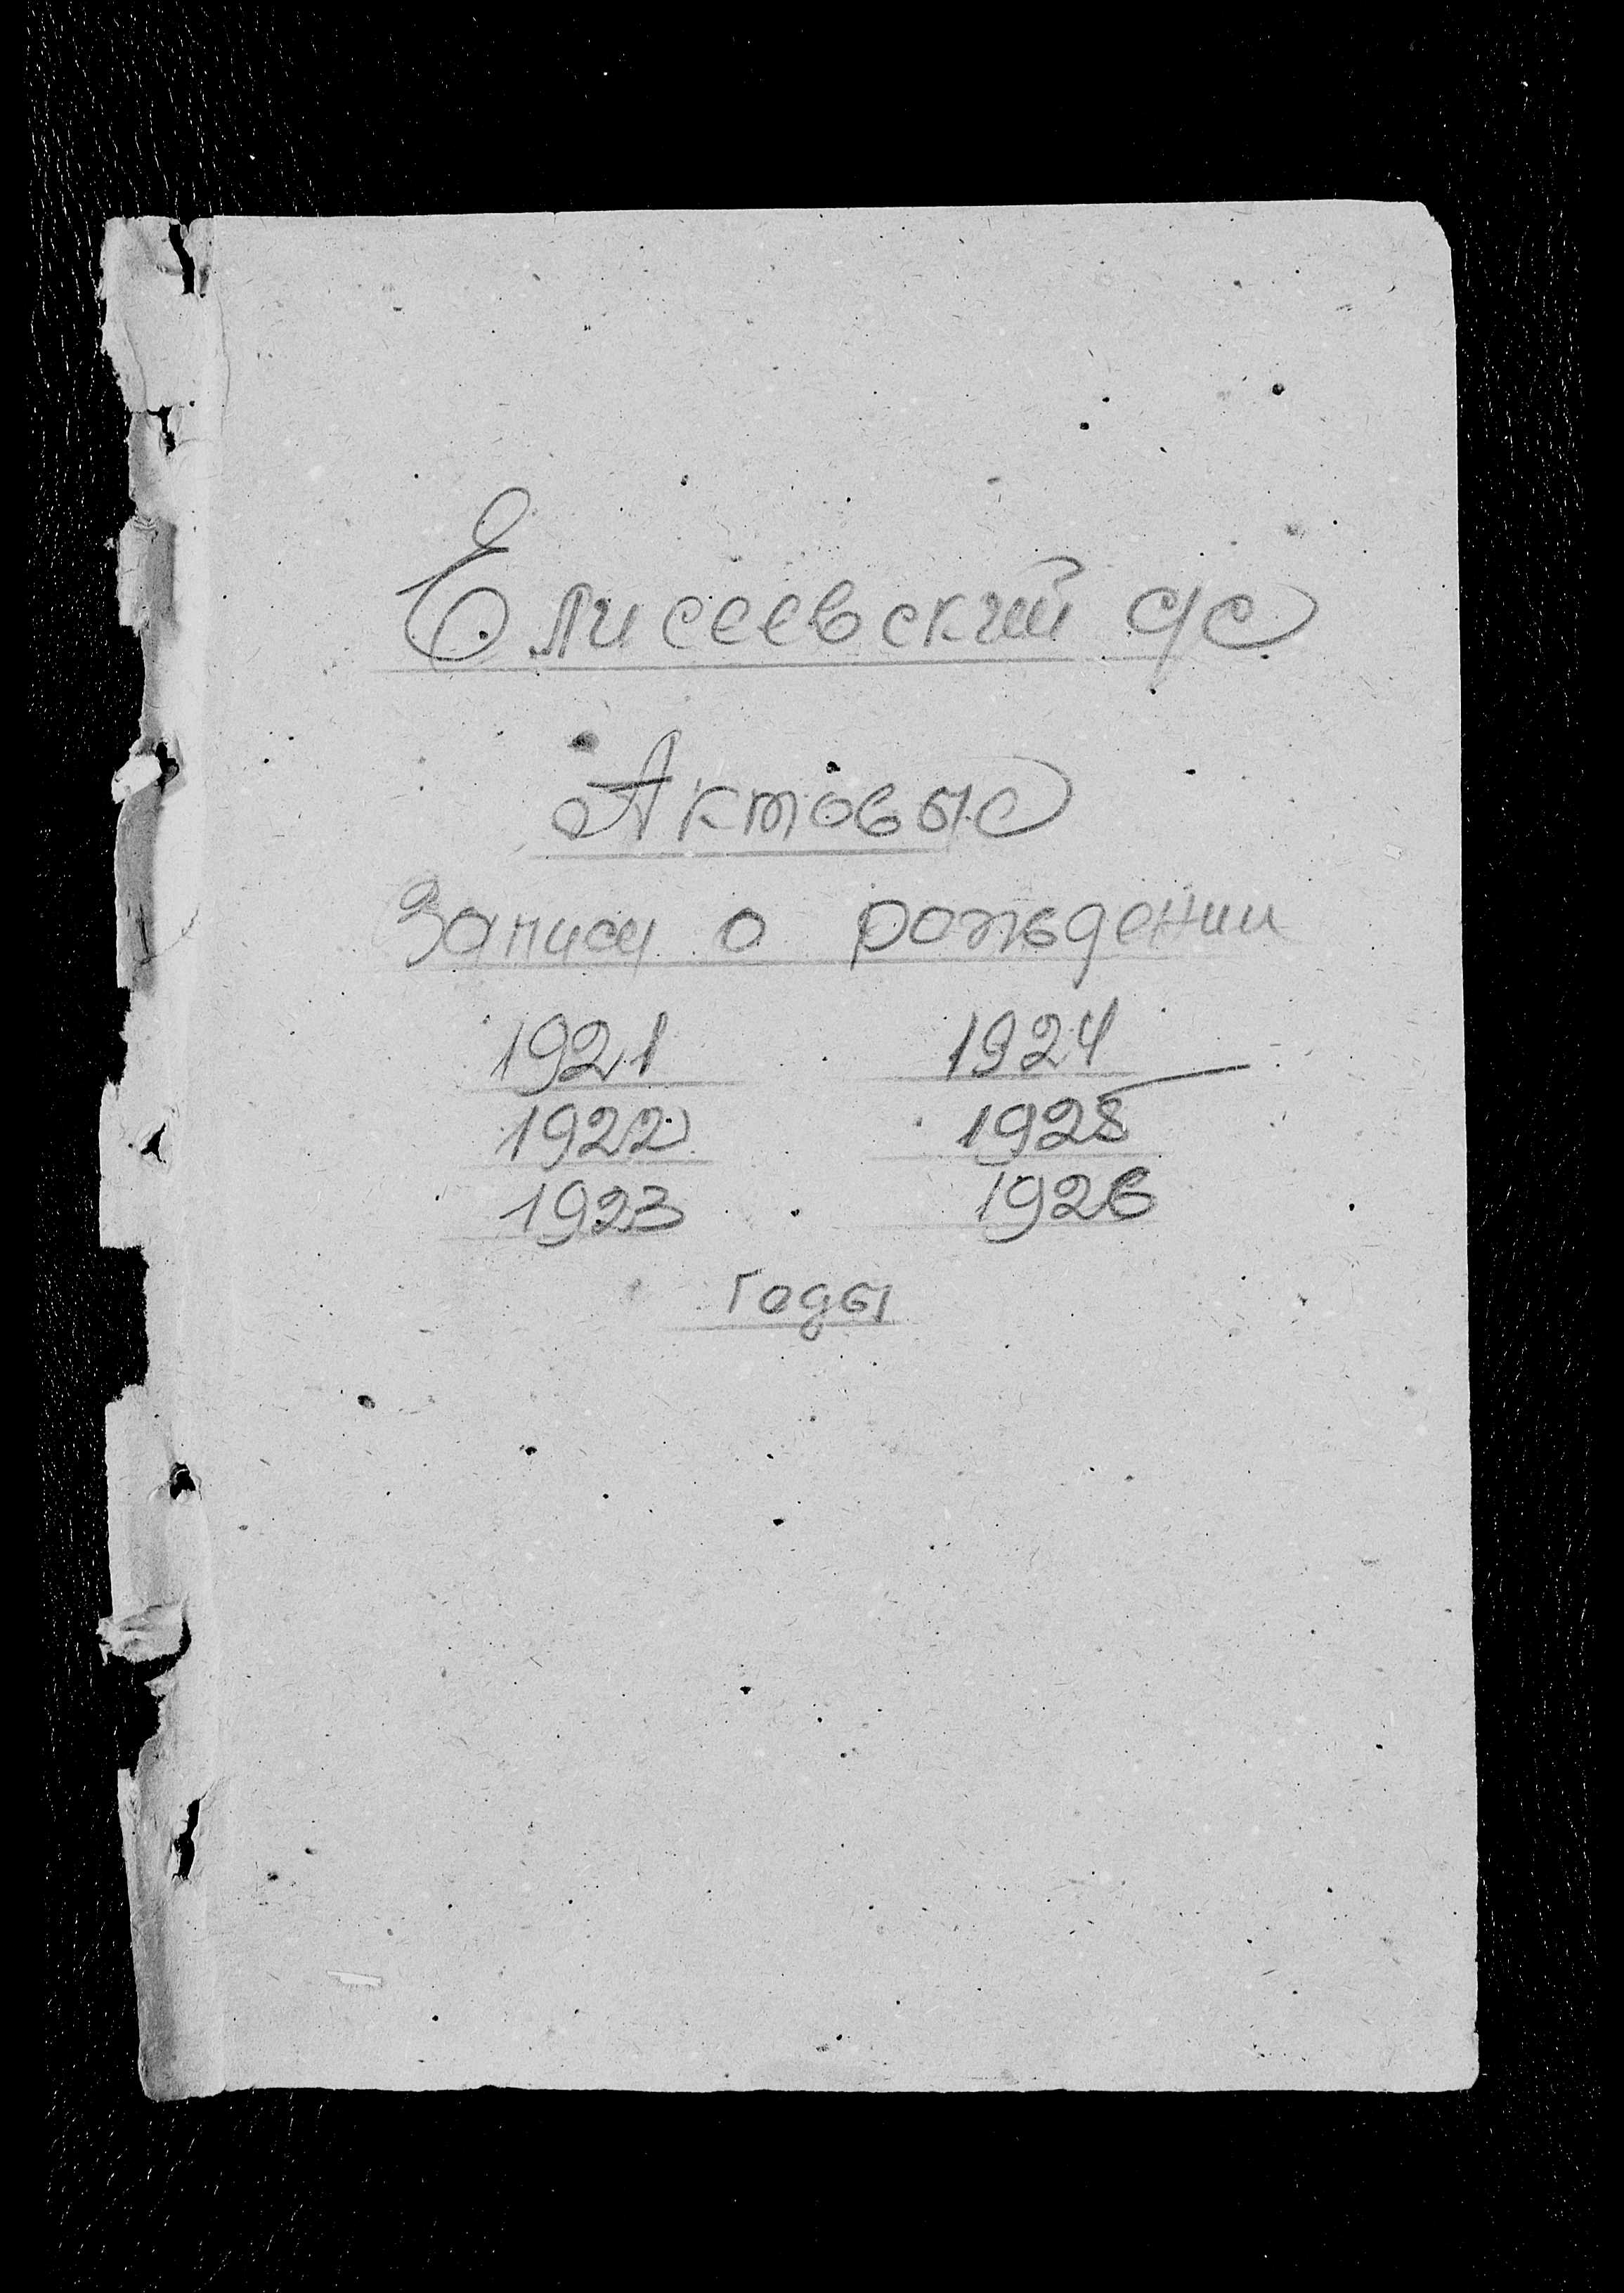 Елисеевский с/с
Актовые
Записи о рождении
1921 1924
1922 1925
1923 1926
годы